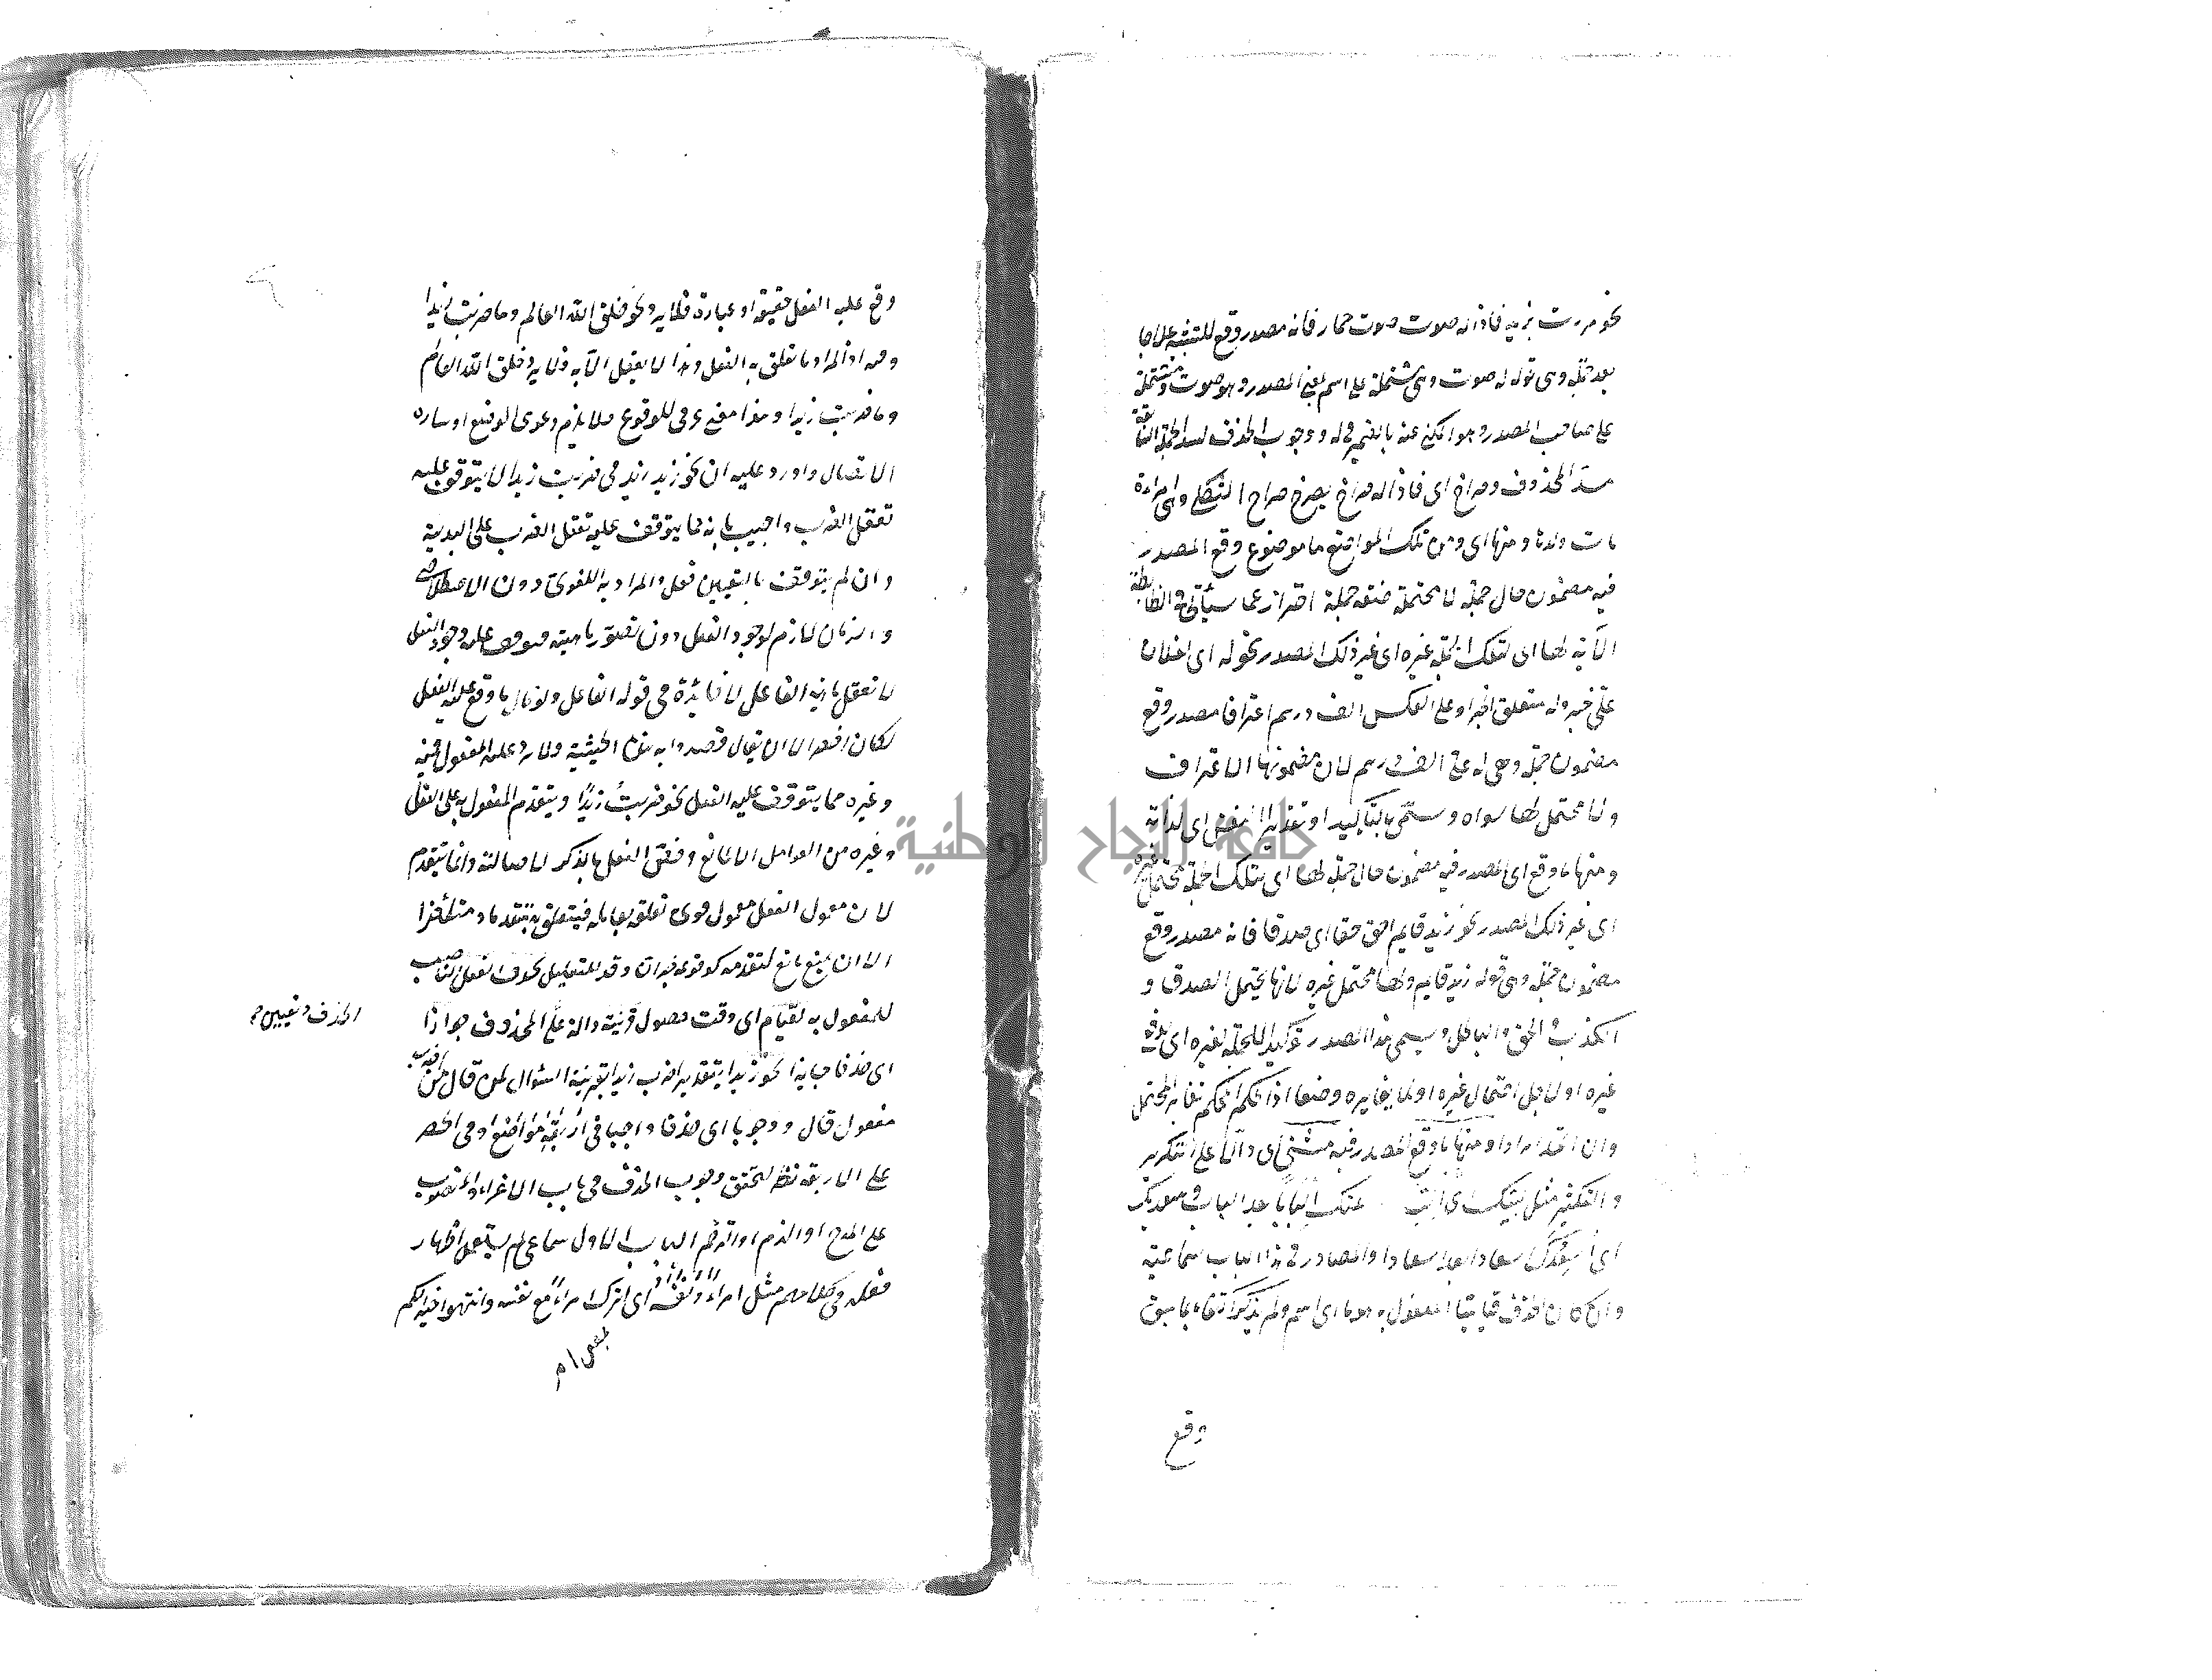 نحو مررت بزيد فاذا له صوت صوت حمار فانه مصدر وقع للتشبيه علاجا
بعد جملة وهي قوله له صوت وهي مشتملة على اسم بمعنى المصدر وهو صوت ومشتملة
على صاحب المصدر وهو المكنى عنه بالضمير في له ووجوب الحذف لسد الجملة السابقة
مسد المحذوف وصراخ اي فاذا له صراخ يصرخ صراخ الثكلى وهي امراة
مات ولدها ومنها اي ومن تلك المواضع ما موضوع وقع المصدر
فيه مضمون حال جملة لا محتملة صفة جملة احتراز عما سيأتي في الضابطة
الآتية لها اي لتلك الجملة غيره اي غير ذلك المصدر نحو له اي لفلان
علي خبر وله متعلق الخبر او على العكس الف درهم اعترافا مصدر وقع
مضمون جملة وهي له علي الف درهم لان مضمونها الاعتراف
ولا محتمل لها سواه وسمي بالتأكيد لنفسه اي لذاته
جامعة النجاح الوطنية
ومنها ما وقع اي المصدر فيه مضمون حال جملة لها اي لتلك الجملة محتمل غيره
اي غير ذلك المصدر نحو زيد قايم حقا اي صدقا فانه مصدر وقع
مضمون جملة وهي قوله زيد قايم ولها محتمل غيره لانها يحتمل الصدق و
الكذب والحق والباطل ويسمى هذا المصدر توكيدا للجملة لغيره اي لدفع
غيره او لاجل احتمال غيره
وان اتحدا ومنها ما وقع المصدر فيه مثنى اي دالا على التكرير
والتكثير مثل لبيك اي البابا بعد الباب وسعديك
اي اسعدك اسعادا بعد اسعاد والمصادر في هذا الباب سماعية
وان كان الحذف قياسيا المفعول به هو ما اي اسم ولم يذكر اكتفاء بما سبق
وقع
وقع عليه الفعل حقيقة او عبارة فلا يرد نحو خلق الله العالم وما ضربت زيدا
اذ المراد ما تعلق به الفعل وهذا لا يعقل الا به فلا يرد خلق الله العالم
وما ضربت زيدا وهذا معنى عرفي للوقوع فلا يلزم دعوى الوضع
الاتصال واورد عليه ان نحو زيد في ضربت زيدا لا يتوقف عليه
تعقل الضرب واجيب بانه مما يتوقف عليه تعقل الضرب على البدلية
وان لم يتوقف بالتعيين فعل والمراد به اللغوي دون الاصطلاحي
والزمان لازم لوجود الفعل دون تصور ماهيته وجود الفعل
لا تعقل ماهية الفاعل لا فايدة في قوله الفاعل ولو قال ما وقع عليه الفعل
لكان اخصر الا ان يقال قصدوا به الحيثية ولا يرد على المفعول فيه
وغيره مما يتوقف عليه الفعل نحو ضربت زيدا ويتقدم المفعول به على الفعل
وغيره من العوامل الا لمانع وخص الفعل بالذكر لاصالته وانما يتقدم
لان معمول الفعل معمول قوي تعلقه بعامله فيتعلق به متقدما ومتأخرا
الا ان يمنع مانع لتقدمه كوقوعه وقد للتقليل يحذف الفعل الناصب
للمفعول به لقيام اي وقت حصول قرينة دالة على المحذوف جوازا
الحذف وتعيين م
اي حذفا جايزا نحو زيدا بتقدير اضرب زيدا بقرينة السؤال لمن قال من اضرب
مفعول قال ووجوبا اي حذفا واجبا في اربعة مواضع وفي الحصر
على الاربعة نظر لتحقق وجوب الحذف في باب الاغراء والمنصوب
على المدح او الذم او الترحم الباب الاول سماعي لم يستعمل اظهار
فعله في كلامهم مثل امراء ونفسه اي اترك امراءً مع نفسه وانتهوا خيرا لكم